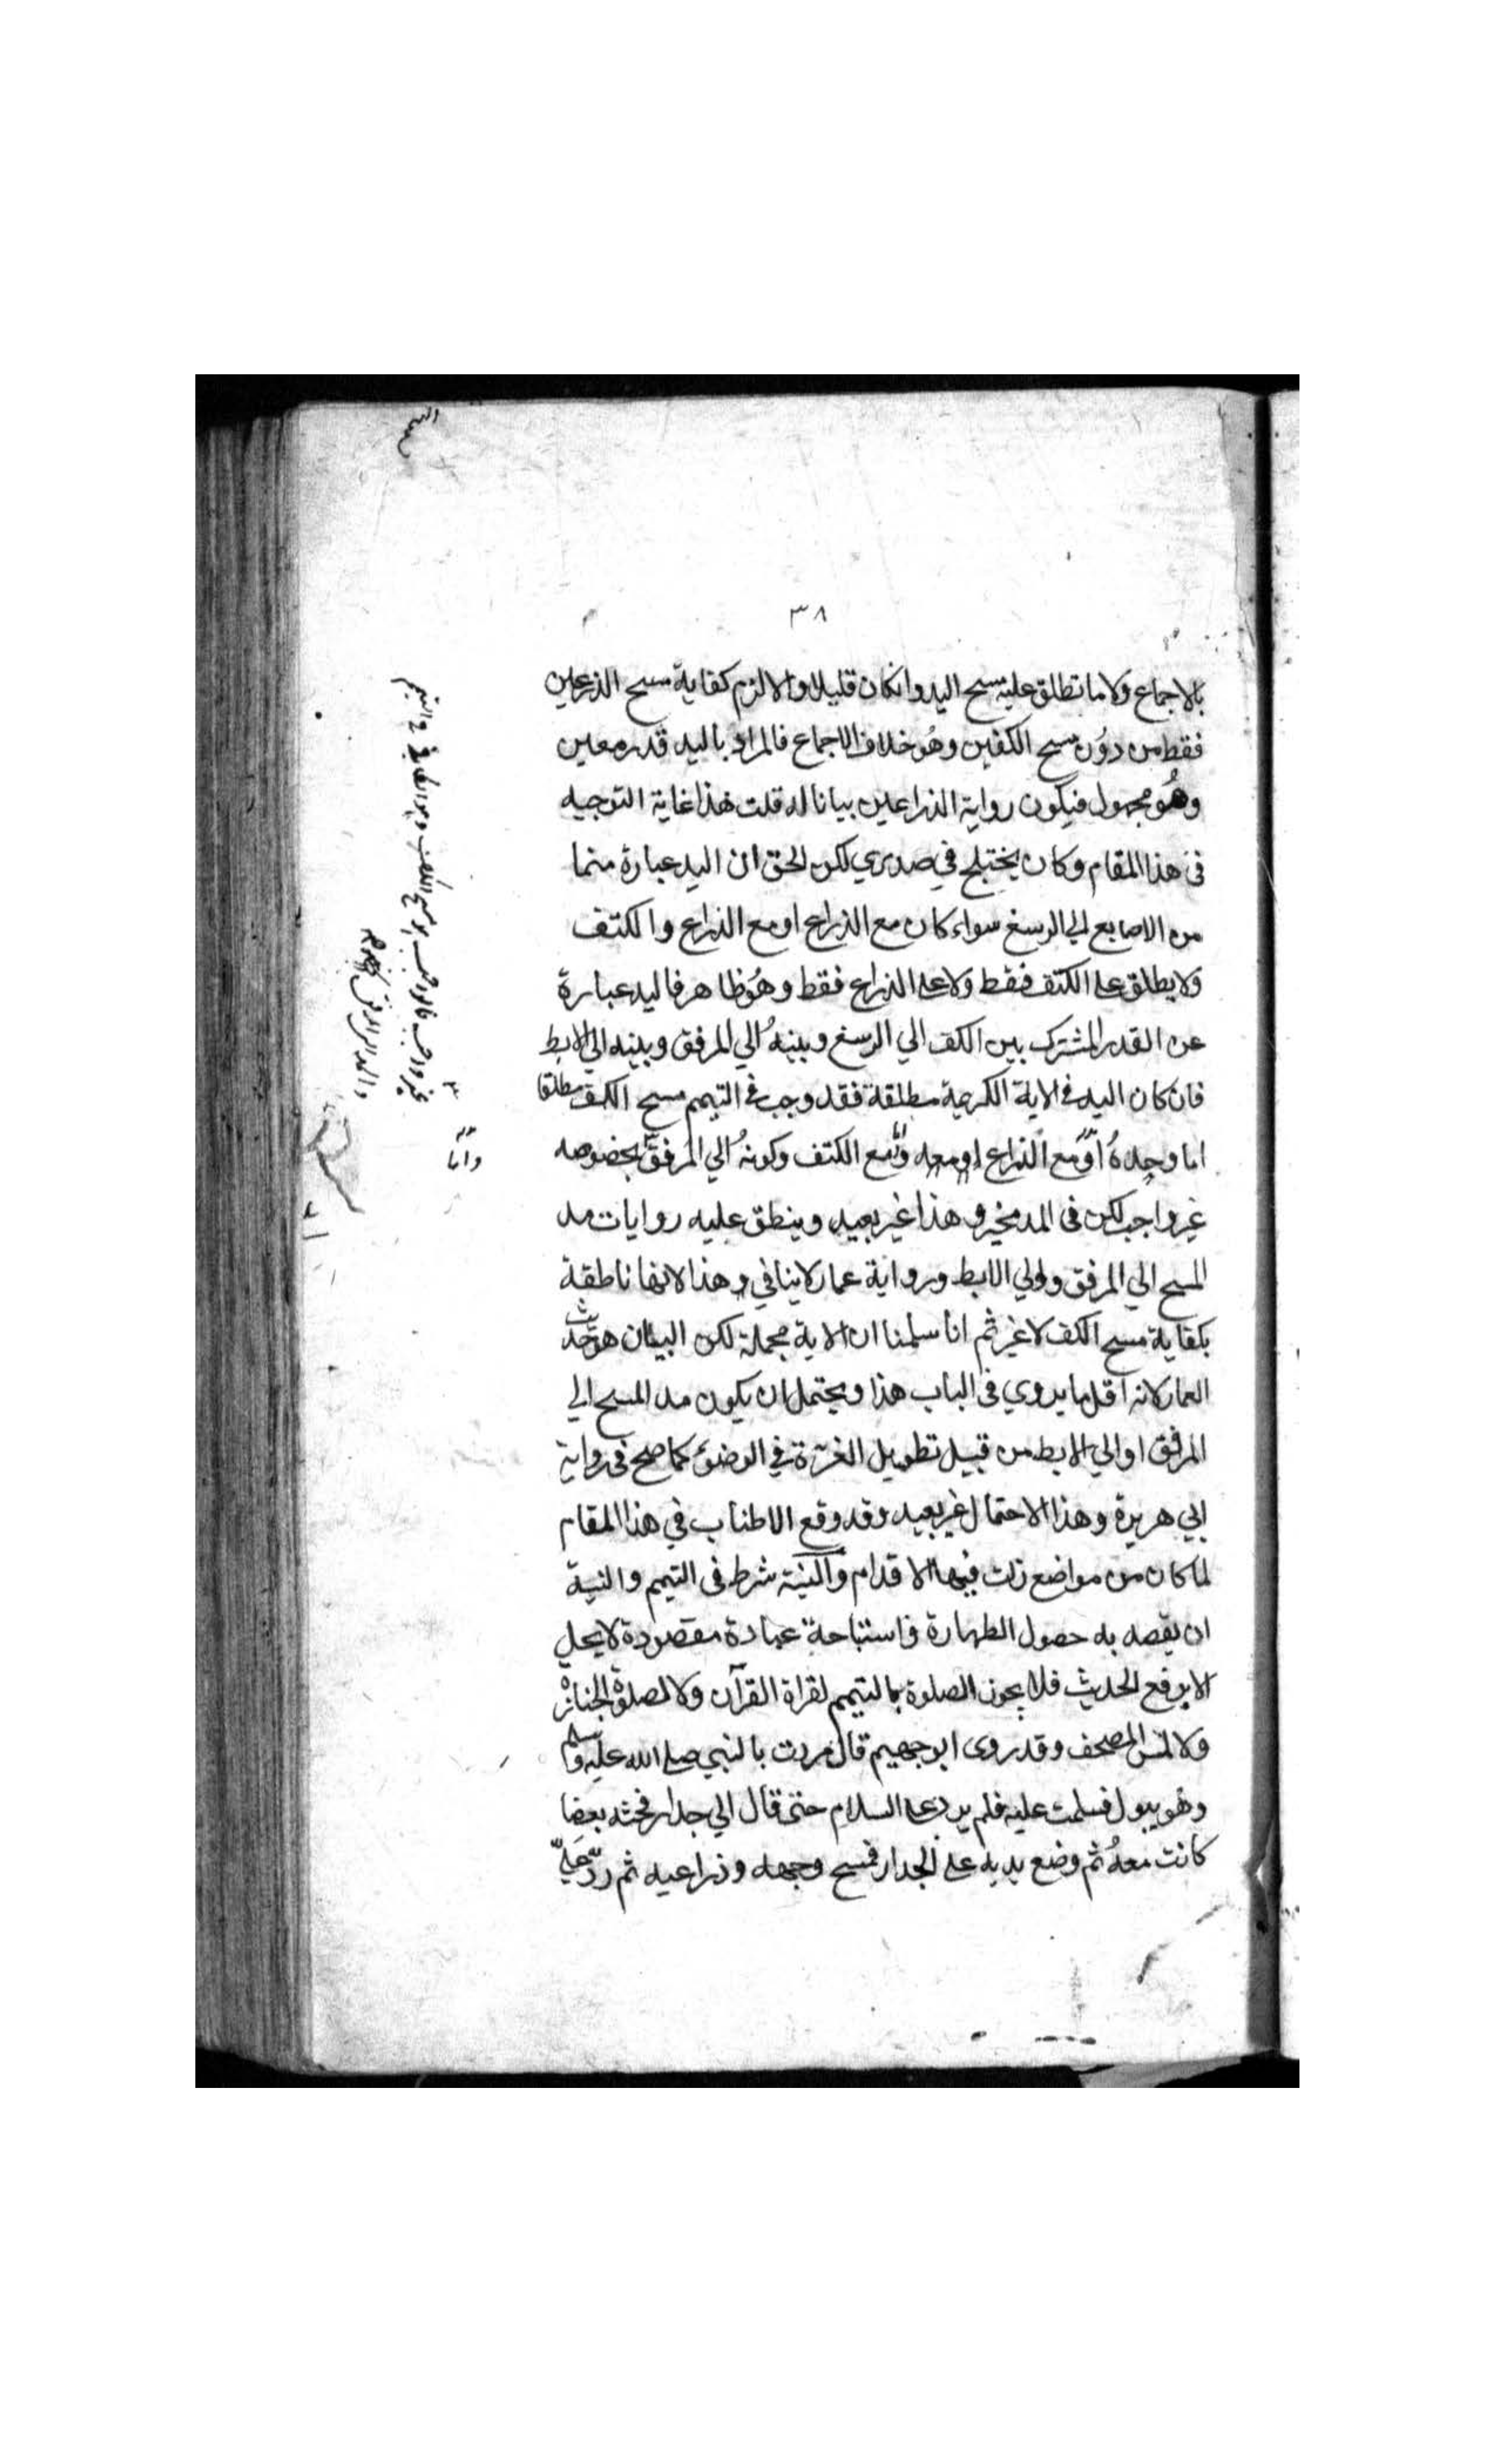 ٣٨
بالاجماع ولا ما تطلق عليه مسح اليد وانكان قليلا والا لزم كفاية مسح الذراعين
فقط من دون مسح الكفين وهو خلاف الاجماع فالمراد باليد قدر معين
وهو مجهول فيكون رواية الذراعين بيانا له قلت هذا غاية التوجيه
فى هذا المقام وكان يختلج في صدري لكن الحق ان اليد عبارة منها
من الاصابع الي الرسغ سواء كان مع الذراع او مع الذراع والكتف
ولا يطلق على الكتف فقط ولا على الذراع فقط وهو ظاهر فاليد عبارة
عن القدر المشترك بين الكف الي الرسغ وبينه الي المرفق وبينه الي الابط
فان كان اليد فى الاية الكريمة مطلقة فقد وجب فى التيمم مسح الكف مطلقا
اما وحده او مع الذراع او معه ومع الكتف وكونه الي المرفق بخصوصه
غير واجب لكن فى المد مخير وهذا غير بعيد وينطق عليه روايات مد
المسح الي المرفق والي الابط ورواية عمار لا ينافي هذا لانها ناطقة
بكفاية مسح الكف لا غير ثم انا سلمنا ان الاية مجملة لكن البيان هو حديث
العمار لانه اقل ما يروي فى الباب هذا ويحتمل ان يكون مد المسح الي
المرفق او الي الابط من قبيل تطويل الغرة في الوضوء كما صح فى رواية
ابي هريرة وهذا الاحتمال غير بعيد وقد وقع الاطناب في هذا المقام
لما كان من مواضع زلت فيها الاقدام والنية شرط فى التيمم والنية
ان يقصد به حصول الطهارة واستباحة عبادة مقصودة لا يحل
الا برفع الحديث فلا يجوز الصلوة بالتيمم لقراة القرآن ولا لصلوة الجنازة
ولا لمس المصحف وقد روى ابو جهيم قال مررت بالنبي صلى الله عليه وسلم
وهو يبول فسلمت عليه فلم يرد على السلام حتى قال الي جدار فحثه بعصا
كانت معه ثم وضع يديه على الجدار فمسح وجهه وذراعيه ثم رد علي
واما